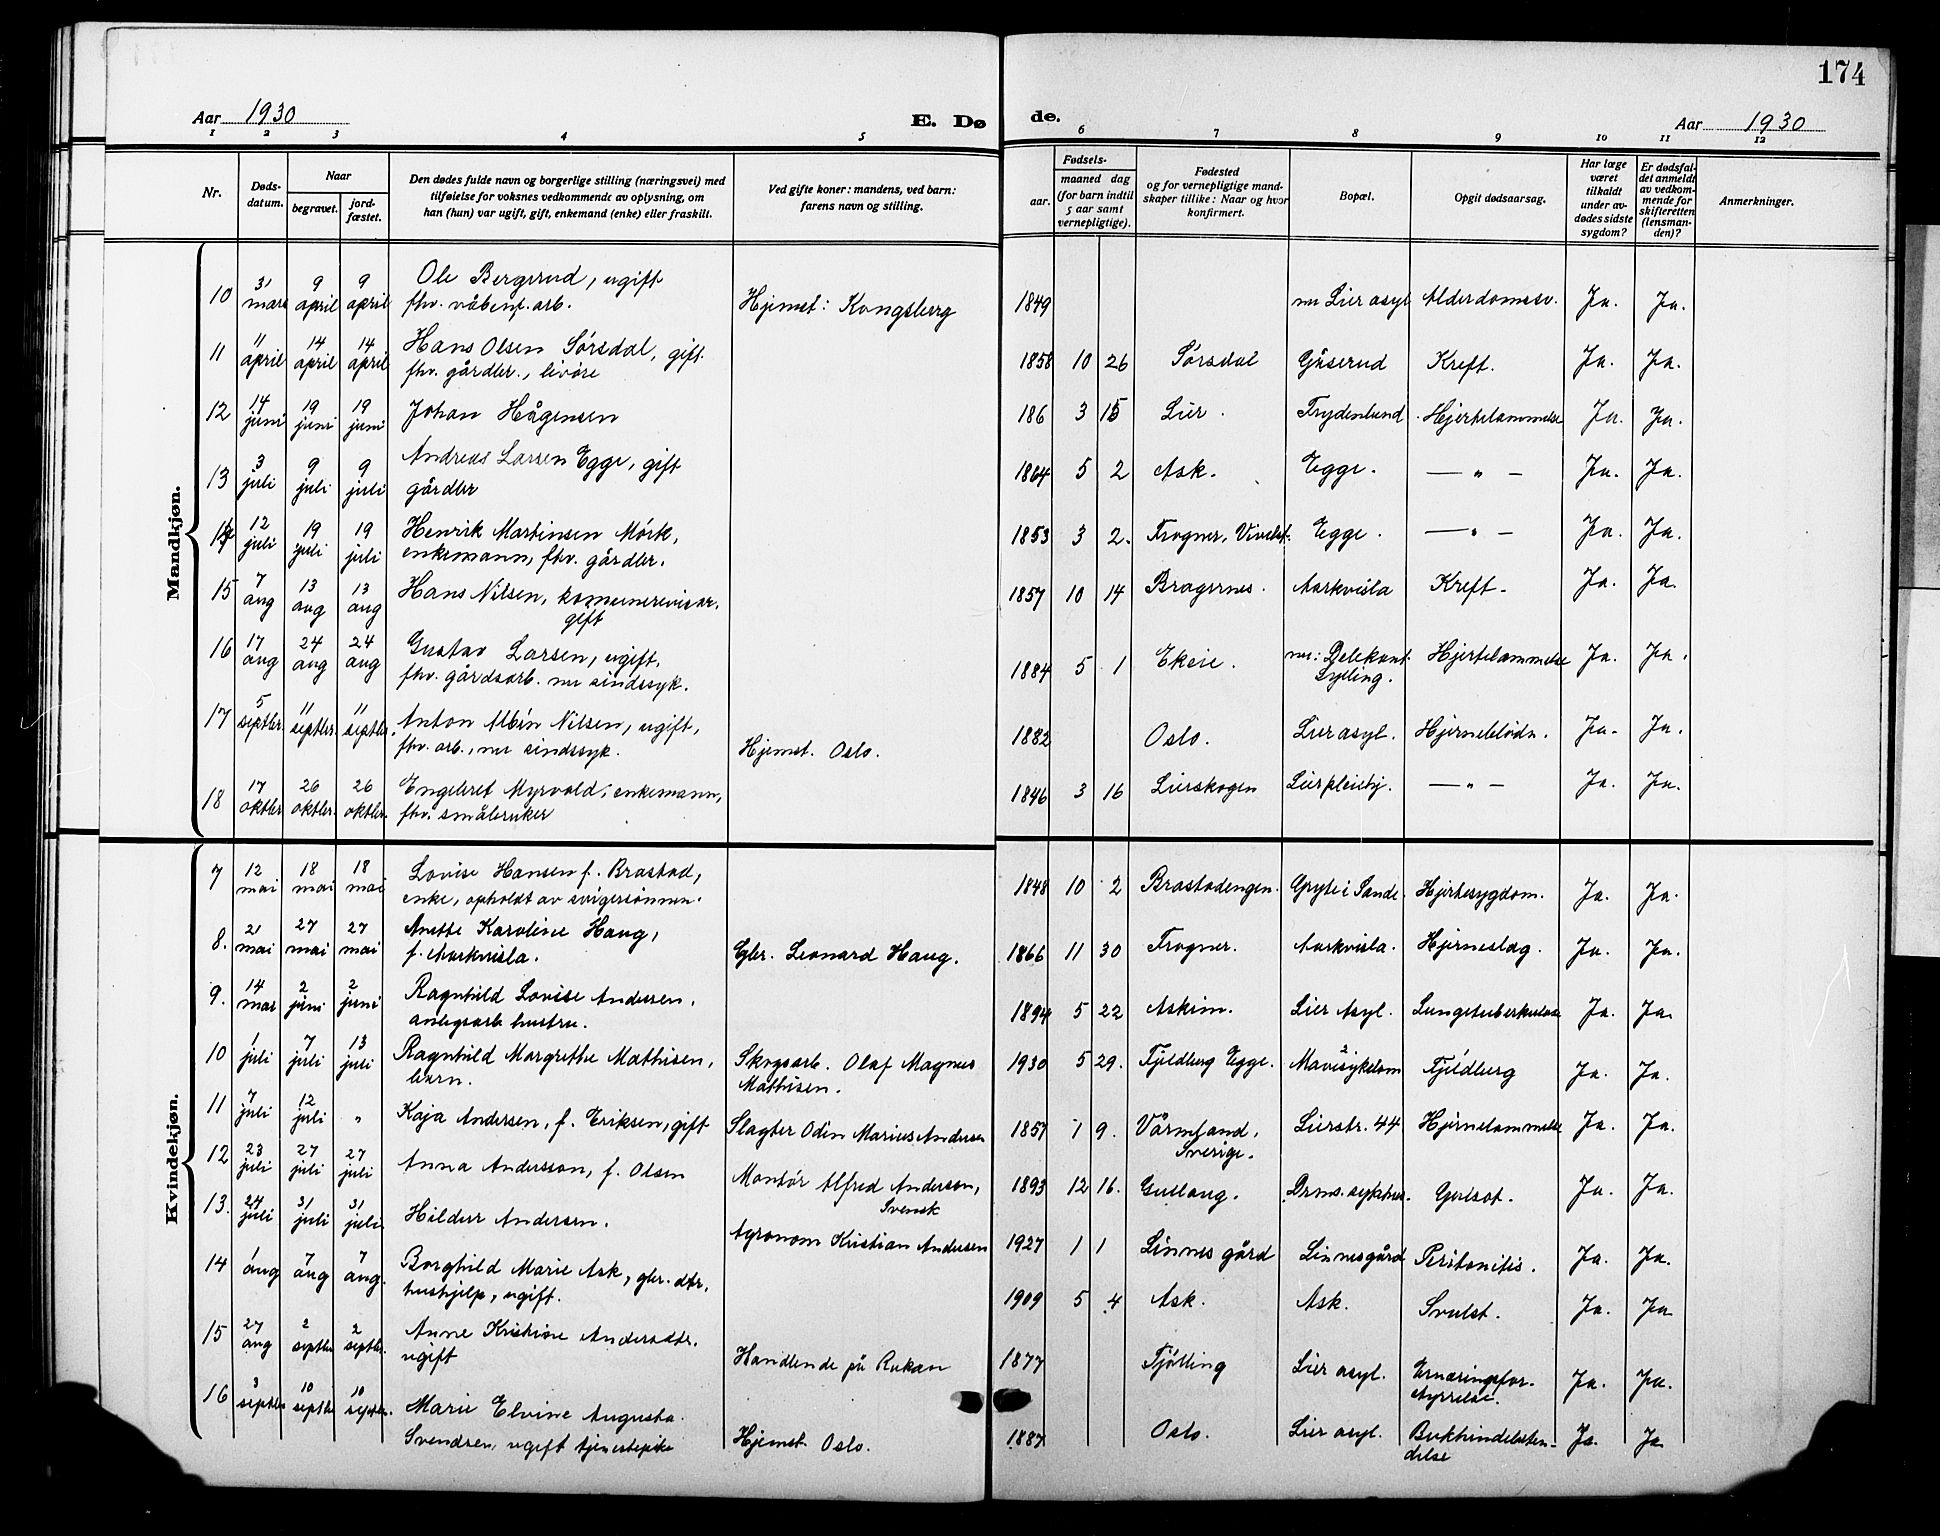 174
Aar 1930
E. Dø
de.
Aar 1930
1 2 3 4 5 6 7 8 9 10 11 12
Nr.
Døds-
datum.
Naar
begravet.
jord-
fæstet.
Den dødes fulde navn og borgerlige stilling (næringsvei) med
tilføielse for voksnes vedkommende av oplysning, om
han (hun) var ugift, gift, enkemand (enke) eller fraskilt.
Ved gifte koner: mandens, ved barn:
farens navn og stilling.
Fødsels-
aar.
maaned dag
(for barn indtil
5 aar samt
vernepligtige).
Fødested
og for vernepligtige mand-
skaper tillike: Naar og hvor
konfirmert.
Bopæl.
Opgit dødsaarsag.
Har læge
været
tilkaldt
under av-
dødes sidste
sygdom?
Er dødsfal-
det anmeldt
av vedkom-
mende for
skifteretten
(lensman-
den)?
Anmerkninger.
Mandkjøn.
10 31 mars 9 april 9 april Ole Bergerud, ugift
fhv. våbenf. arb. Hjemst: Kongsberg 1849 nu Lier asyl Alderdomssv. Ja. Ja.
11 11 april 14 april 14 april Hans Olsen Sørsdal, gift.
fhv. gårdbr., livøre 1858 10 26 Sørsdal Gåserud Kreft. Ja. Ja.
12 14 juni 19 juni 19 juni Johan Hågensen 186 3 15 Lier. Frydenlund Hjertelammelse Ja. Ja.
13 3 juli 9 juli 9 juli Andreas Larsen Egge, gift
gårdbr 1864 5 2 Ask. Egge. — " — Ja. Ja.
14 12 juli 19 juli 19 juli Henrik Martinsen Mörk,
enkemann, fhv. gårdbr. 1853 3 2. Frogner, Vivelst. Egge. — " — Ja. Ja.
15 7 aug 13 aug 13 aug Hans Nilsen, komunerevisor.
gift 1857 10 14 Bragernes. Aarkvisla Kreft. Ja. Ja.
16 17 aug 24 aug 24 aug Gustav Larsen, ugift,
fhv. gårdsarb. nu sindssyk. 1884 5 1 Ekeie. nu: Delekant.
Sylling. Hjertelammelse Ja. Ja.
17 5 septbr. 11 septbr. 11 septbr. Anton Albin Nilsen, ugift,
fhv. arb., nu sindssyk. Hjemst. Oslo. 1882 Oslo. Lier asyl. Hjerneblødn. Ja. Ja.
18 17 oktbr 26 oktbr. 26 oktbr. Engebret Myrvold, enkemann,
fhv. småbruker 1846 3 16 Lierskogen Lier pleiehj. — " — Ja. Ja.
Kvindekjøn.
7 12 mai 18 mai 18 mai Lovise Hansen f. Brastad,
enke, opholdt av svigersønnen. 1848 10 2 Brastadengen. Gryte i Sande. Hjertesygdom. Ja. Ja.
8. 21 mai 27 mai 27 mai Anette Karoline Haug,
f. Aarkvisla. Gbr. Leonard Haug. 1866 11 30 Frogner. Aarkvisla. Hjerneslag. Ja. Ja.
9. 14 mar 2 juni 2 juni Ragnhild Lovise Andersen.
anlegsarb hustru. 1894 5 22 Askim. Lier Asyl. Lungetuberkulose Ja. Ja.
10 1 juli 7 juli 13 juli Ragnhild Margrethe Mathisen,
barn. Skogsarb. Olaf Magnus
Mathisen. 1930 5 29. Fjeldberg Egge. Fjeldberg Ja. Ja.
11 7 juli 12 juli " Kaja Andersen, f. Eriksen, gift Slagter Odin Marius Andersen 1857 1 9. Värmland,
Sverige. Lierstr. 44 Hjernelammelse Ja. Ja.
12 23 juli 27 juli 27 juli Anna Andersson, f. Olsen Montør Alfred Anderson,
Svensk 1893 12 16. Gullaug. Drms. sykehus. Gulsot. Ja. Ja.
13. 27 juli 31 juli 31 juli Hildur Andersen. Agronom Kristian Andersen 1927 1 1 Linnes gård Linnesgård Peritonitis. Ja. Ja.
14 1 aug 7 aug 7 aug. Borghild Marie Ask, gbr. dtr.
hushjelp, ugift. 1909 5 4 Ask. Ask. Svulst. Ja. Ja
15 27 aug 2 septbr 2 septbr. Anne Kristine Andersdtr.
ugift Handlende på Rukan 1877 Fjölling Lier asyl. Ernæringsfor-
styrrelse. Ja. Ja.
16 3 septbr 10 septbr 10 septbr. Marie Elvine Augusta
Svendsen, ugift tjenestepike Hjemst. Oslo. 1887 Oslo. Lier asyl. Bukhindebeten-
delse Ja. Ja